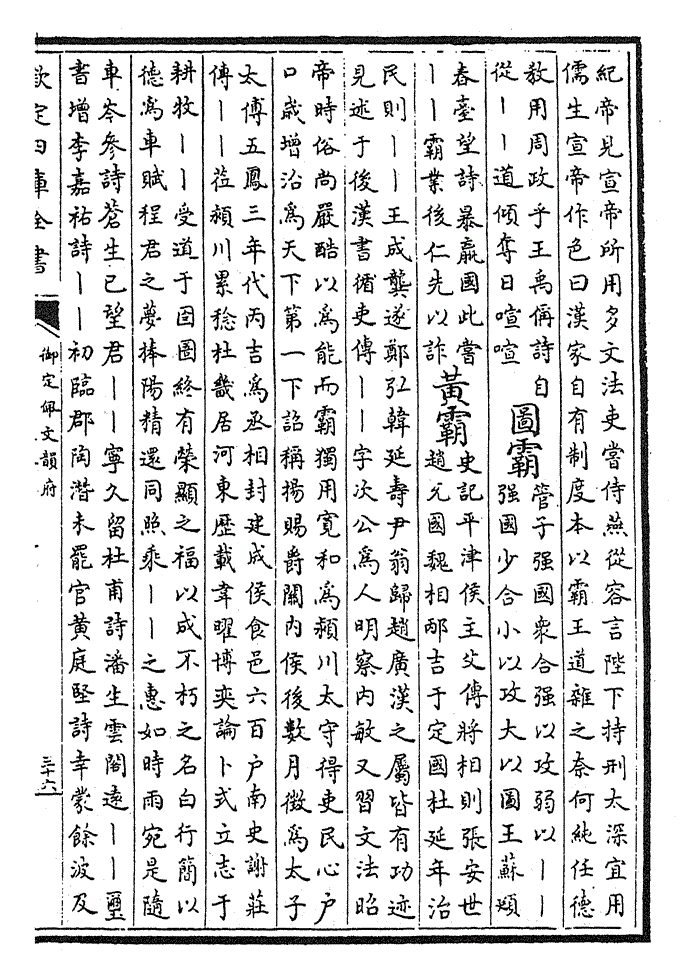 紀帝見宣帝所用多文法吏嘗侍燕從容言陛下持刑太深宜用
儒生宣帝作色曰漢家自有制度本以霸王道雜之奈何純任德
教用周政乎王禹偁詩自
從丨丨道傾奪日喧喧
圖霸
管子强國衆合强以攻弱以丨丨
强國少合小以攻大以圖王蘇頲
春臺望詩暴嬴國此嘗
丨丨霸業後仁先以詐
黃霸
史記平津侯主父傳將相則張安世
趙充國魏相邴吉于定國杜延年治
民則丨丨王成龔遂鄭弘韓延壽尹翁歸趙廣漢之屬皆有功迹
見述于後漢書循吏傳丨丨字次公為人明察内敏又習文法昭
帝時俗尚嚴酷以為能而霸獨用寛和為潁川太守得吏民心户
口歲增治為天下第一下詔稱揚賜爵關内侯後數月徵為太子
太傅五鳳三年代丙吉為丞相封建成侯食邑六百户南史謝莊
傳丨丨莅潁川累稔杜畿居河東歴載韋曜博奕論卜式立志于
耕牧丨丨受道于囹圄終有榮顯之福以成不朽之名白行簡以
德為車賦程君之夢捧陽精還同照乘丨丨之惠如時雨宛是隨
車岑參詩蒼生已望君丨丨寧久留杜甫詩潘生雲閣遠丨丨璽
書增李嘉祐詩丨丨初臨郡陶潛未罷官黄庭堅詩幸蒙餘波及
欽定四庫全書
御定佩文韻府
三十六